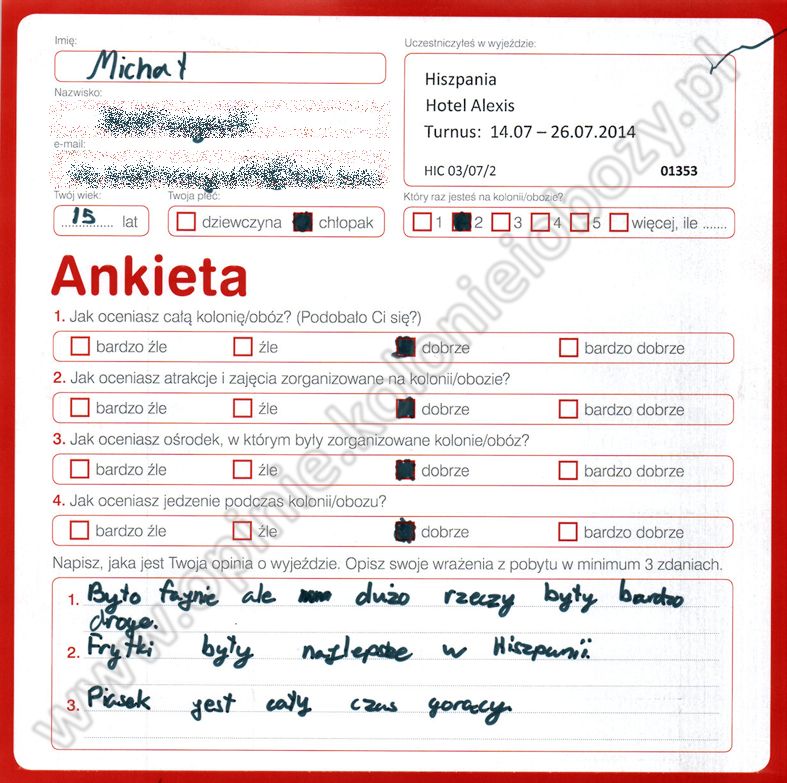 Imię:
Michał
Uczestniczyłeś w wyjeździe:
Hiszpania
Hotel Alexis
Turnus: 14.07 – 26.07.2014
HIC 03/07/2 01353
Nazwisko:
e-mail:
Twój wiek: Twoja płeć: Który raz jesteś na kolonii/obozie?
15 lat dziewczyna chłopak 1 2 3 4 5 więcej, ile .......
Ankieta
1. Jak oceniasz całą kolonię/obóz? (Podobało Ci się?)
bardzo źle źle dobrze bardzo dobrze
2. Jak oceniasz atrakcje i zajęcia zorganizowane na kolonii/obozie?
bardzo źle źle dobrze bardzo dobrze
3. Jak oceniasz ośrodek, w którym były zorganizowane kolonie/obóz?
bardzo źle źle dobrze bardzo dobrze
4. Jak oceniasz jedzenie podczas kolonii/obozu?
bardzo źle źle dobrze bardzo dobrze
Napisz, jaka jest Twoja opinia o wyjeździe. Opisz swoje wrażenia z pobytu w minimum 3 zdaniach.
1. Było fajnie ale dużo rzeczy były bardzo
drogo.
2. Frytki były najlepsze w Hiszpanii.
3. Piasek jest cały czas gorący.
www.opinie.kolonieiobozy.pl